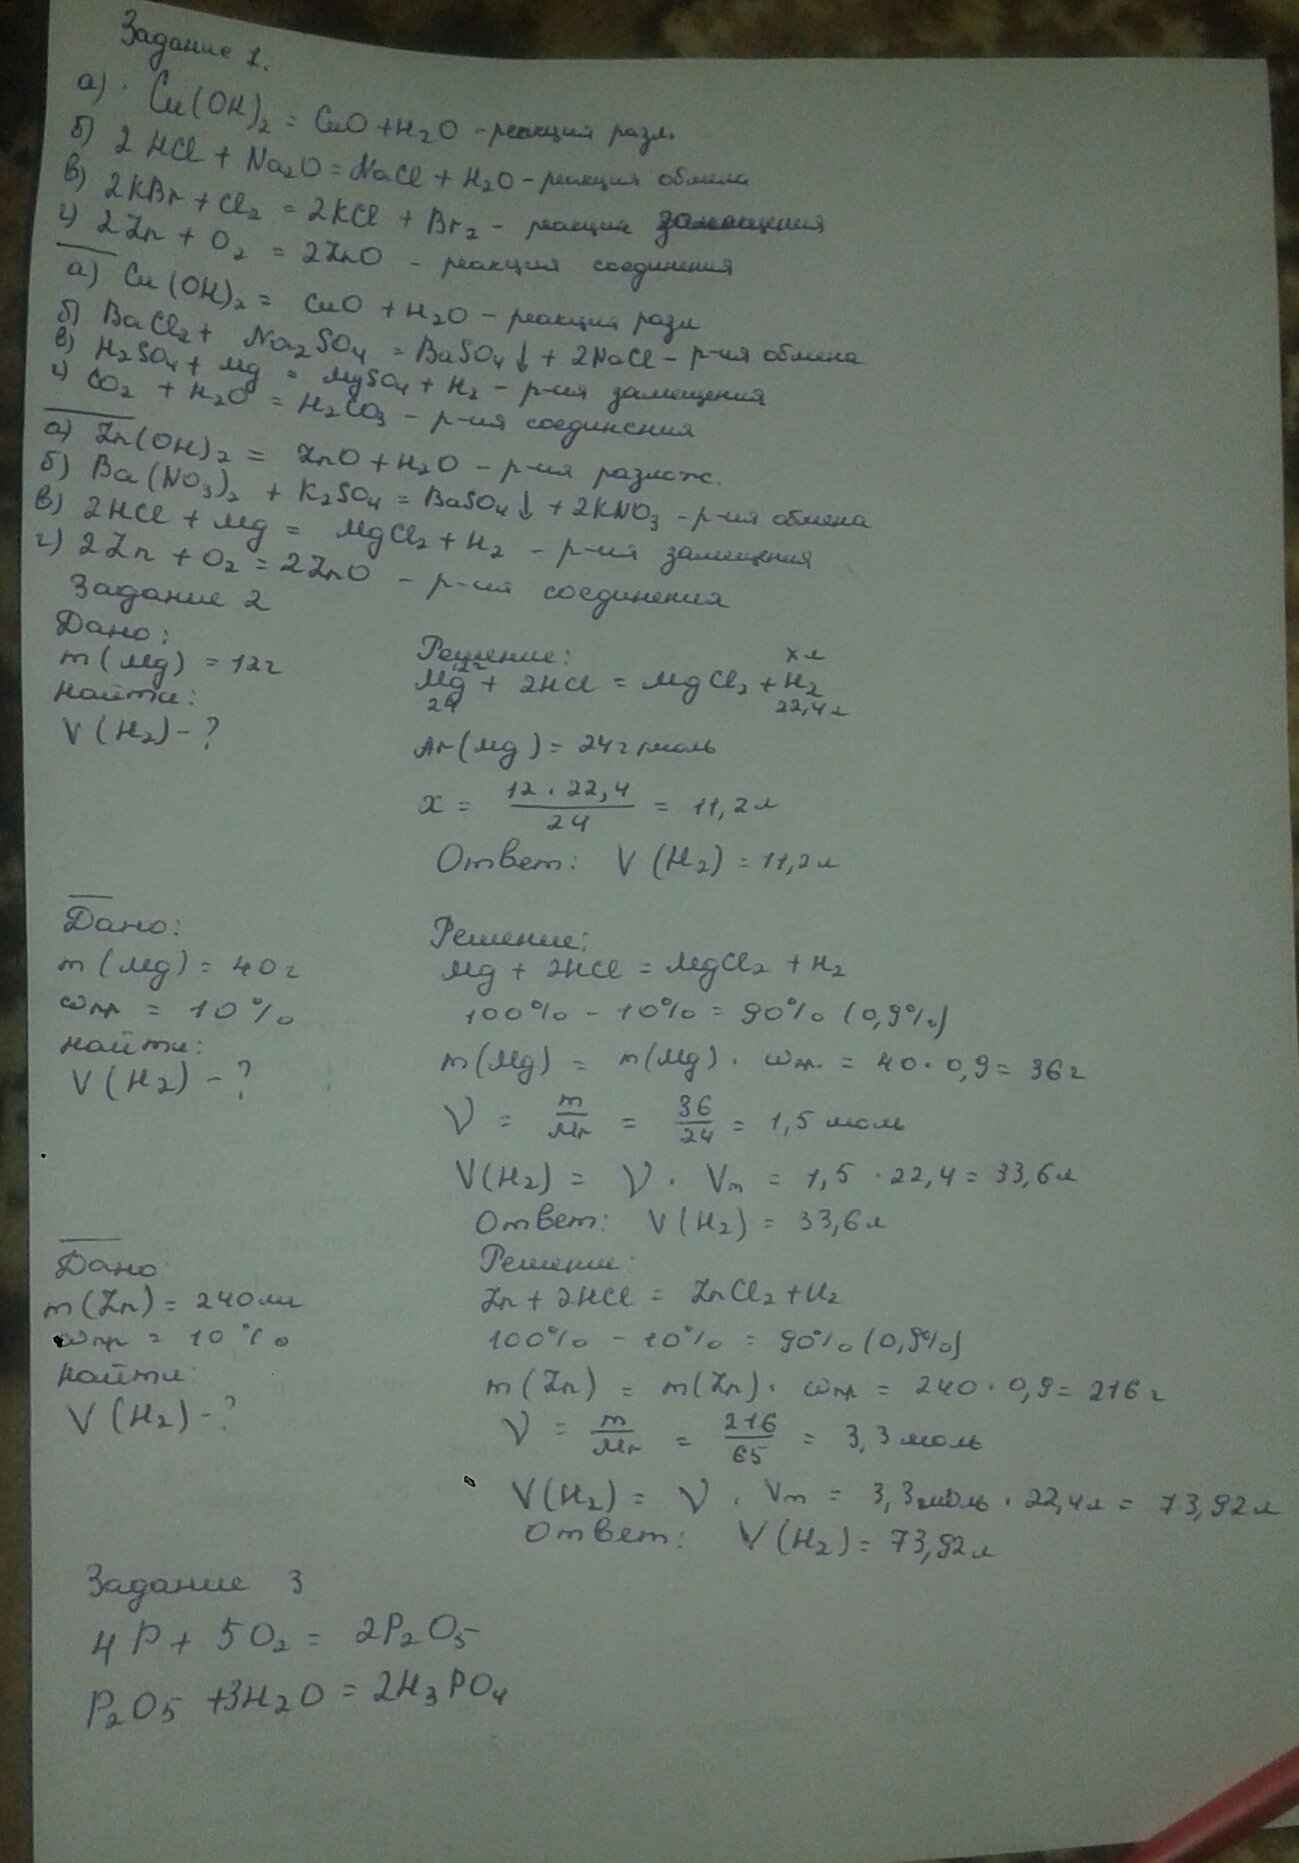 Задание 1.
а) Cu(OH)₂ = CuO + H₂O - реакция разл.
б) 2HCl + Na₂O = NaCl + H₂O - реакция обмена
в) 2KBr + Cl₂ = 2KCl + Br₂ - реакция замещения
г) 2Zn + O₂ = 2ZnO - реакция соединения
а) Cu(OH)₂ = CuO + H₂O - реакция разл
б) BaCl₂ + Na₂SO₄ = BaSO₄↓ + 2NaCl - р-ия обмена
в) H₂SO₄ + Mg = MgSO₄ + H₂ - р-ия замещения
г) CO₂ + H₂O = H₂CO₃ - р-ия соединения
а) Zn(OH)₂ = ZnO + H₂O - р-ия разлож.
б) Ba(NO₃)₂ + K₂SO₄ = BaSO₄↓ + 2KNO₃ - р-ия обмена
в) 2HCl + Mg = MgCl₂ + H₂ - р-ия замещения
г) 2Zn + O₂ = 2ZnO - р-ия соединения
Задание 2
Дано:
m(Mg) = 12г
Найти:
V(H₂) - ?
Решение:
12г x л
Mg + 2HCl = MgCl₂ + H₂
24 22,4л
Ar(Mg) = 24г/моль
x = 12 · 22,4 / 24 = 11,2л
Ответ: V(H₂) = 11,2л
Дано:
m(Mg) = 40г
ωпр = 10%
Найти:
V(H₂) - ?
Решение:
Mg + 2HCl = MgCl₂ + H₂
100% - 10% = 90% (0,9%)
m(Mg) = m(Mg) · ωпр. = 40 · 0,9 = 36г
ν = m/Mr = 36/24 = 1,5 моль
V(H₂) = ν · Vm = 1,5 · 22,4 = 33,6л
Ответ: V(H₂) = 33,6л
Дано
m(Zn) = 240мг
ωпр = 10%
Найти:
V(H₂) - ?
Решение:
Zn + 2HCl = ZnCl₂ + H₂
100% - 10% = 90% (0,9%)
m(Zn) = m(Zn) · ωпр = 240 · 0,9 = 216г
ν = m/Mr = 216/65 = 3,3 моль
V(H₂) = ν · Vm = 3,3моль · 22,4л = 73,92л
Ответ: V(H₂) = 73,92л
Задание 3
4P + 5O₂ = 2P₂O₅
P₂O₅ + 3H₂O = 2H₃PO₄